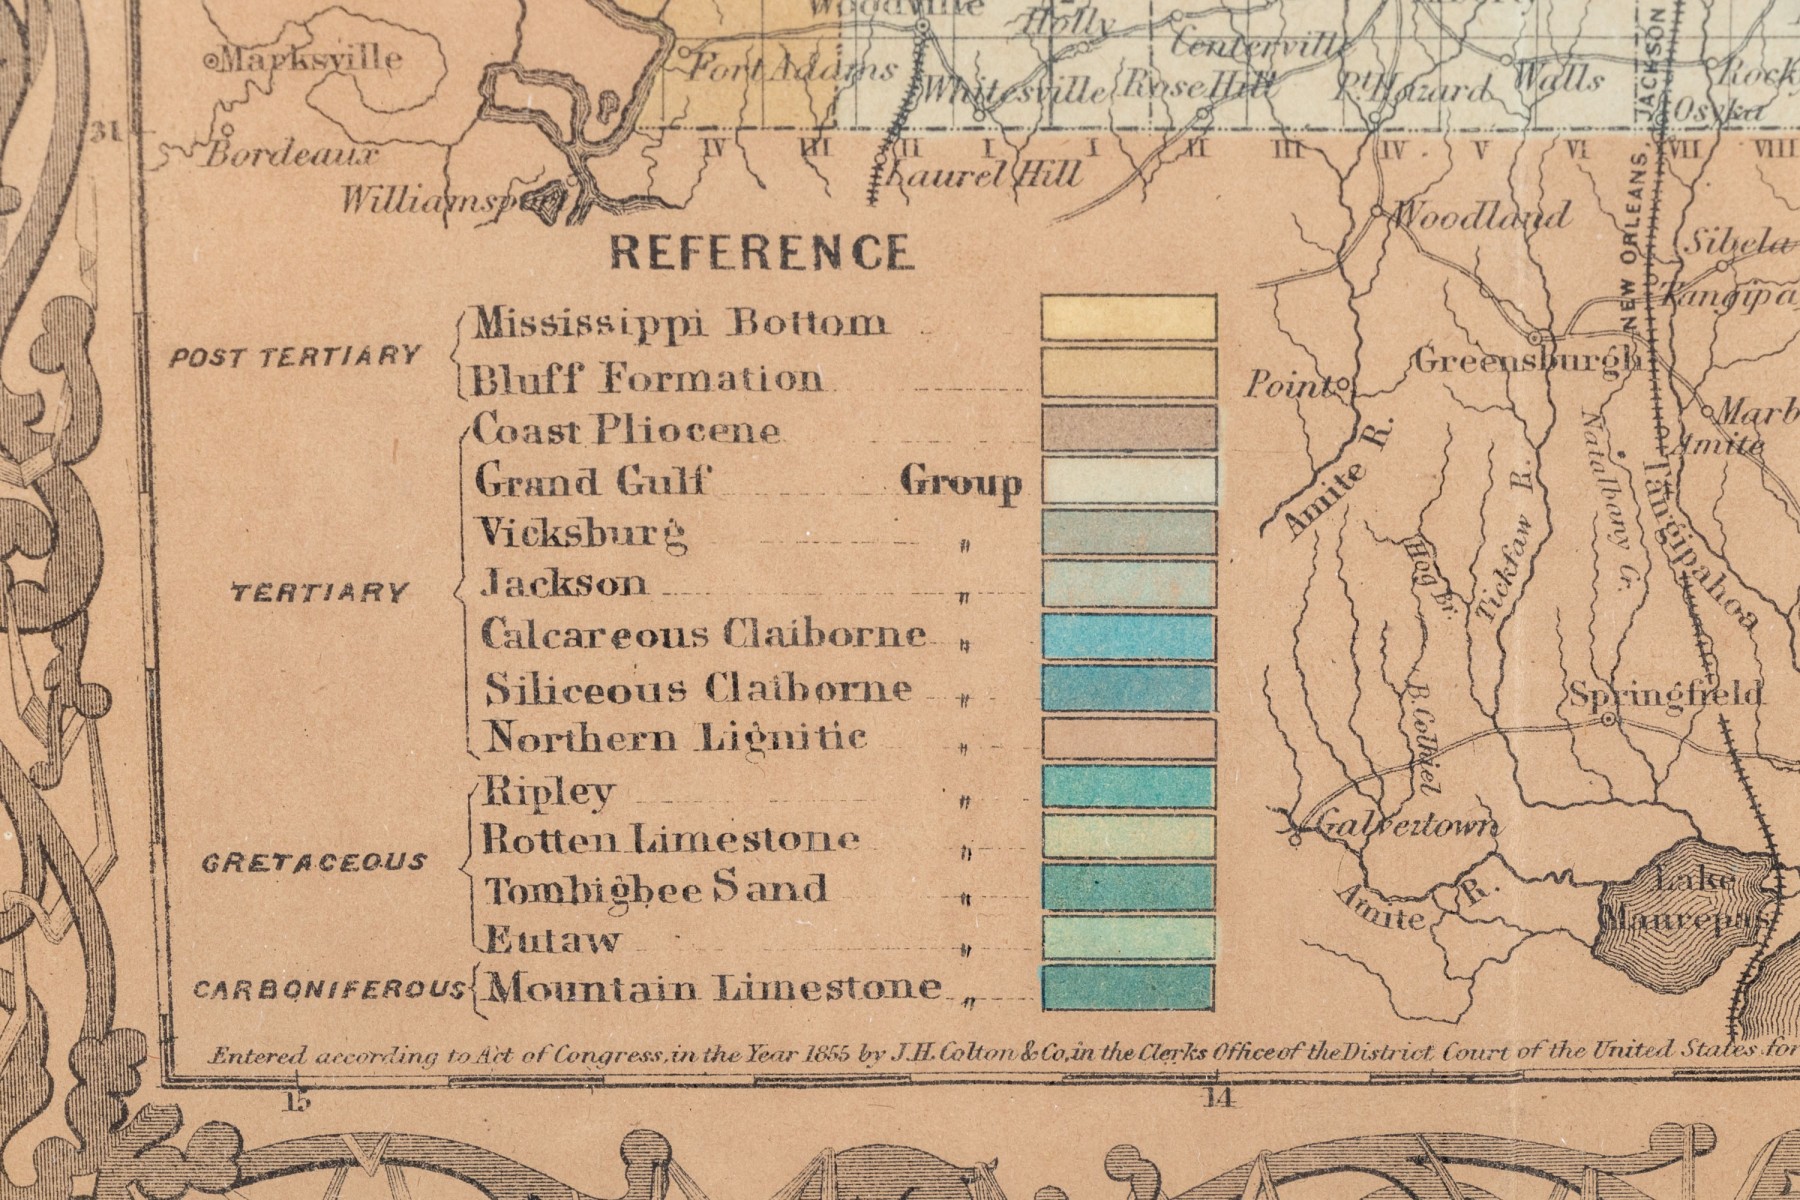 Woodville
Holly
Marksville
Centerville
Fort Adams
Whitesville
Rose Hill
Pt. Hazard
Walls
JACKSON
Osyka
31
Bordeaux
IV III II I I II III IV V VI VII VIII
Laurel Hill
Williamsport
Woodland
NEW ORLEANS,
Sibela
REFERENCE
Mississippi Bottom
POST TERTIARY
Bluff Formation
Greensburgh
Point
Coast Pliocene
Amite R.
Amite
Grand Gulf Group
Vicksburg "
Tickfaw R.
Natalbany G.
Tangipahoa
Hog Br.
Jackson "
TERTIARY
Calcareous Claiborne "
Siliceous Claiborne "
Springfield
Northern Lignitic "
B. Colhiel
Ripley "
Galvertown
Rotten Limestone "
CRETACEOUS
Tombigbee Sand "
Amite R.
Lake
Maurepas
Eutaw "
CARBONIFEROUS Mountain Limestone "
Entered according to Act of Congress, in the Year 1855 by J.H. Colton & Co, in the Clerks Office of the District Court of the United States for
15 14